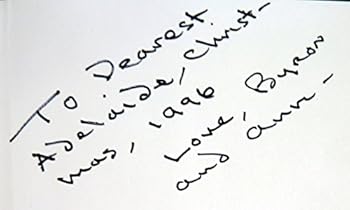 To Dearest
Adelaide, Christ-
mas, 1996
Love, Byron
and Ann-